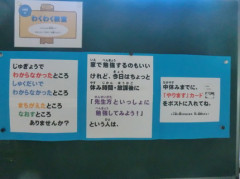 わくわく教室
じゅぎょうで
わからなかったところ
しゅくだいで
わからなかったところ
まちがえたところ
なおすところ
ありませんか？
家で勉強するのもいい
けれど、今日はちょっと
休み時間・放課後に
「先生方といっしょに
勉強してみよう！」
という人は、
中休みまでに、
「やります」カード
をポストに入れてね。